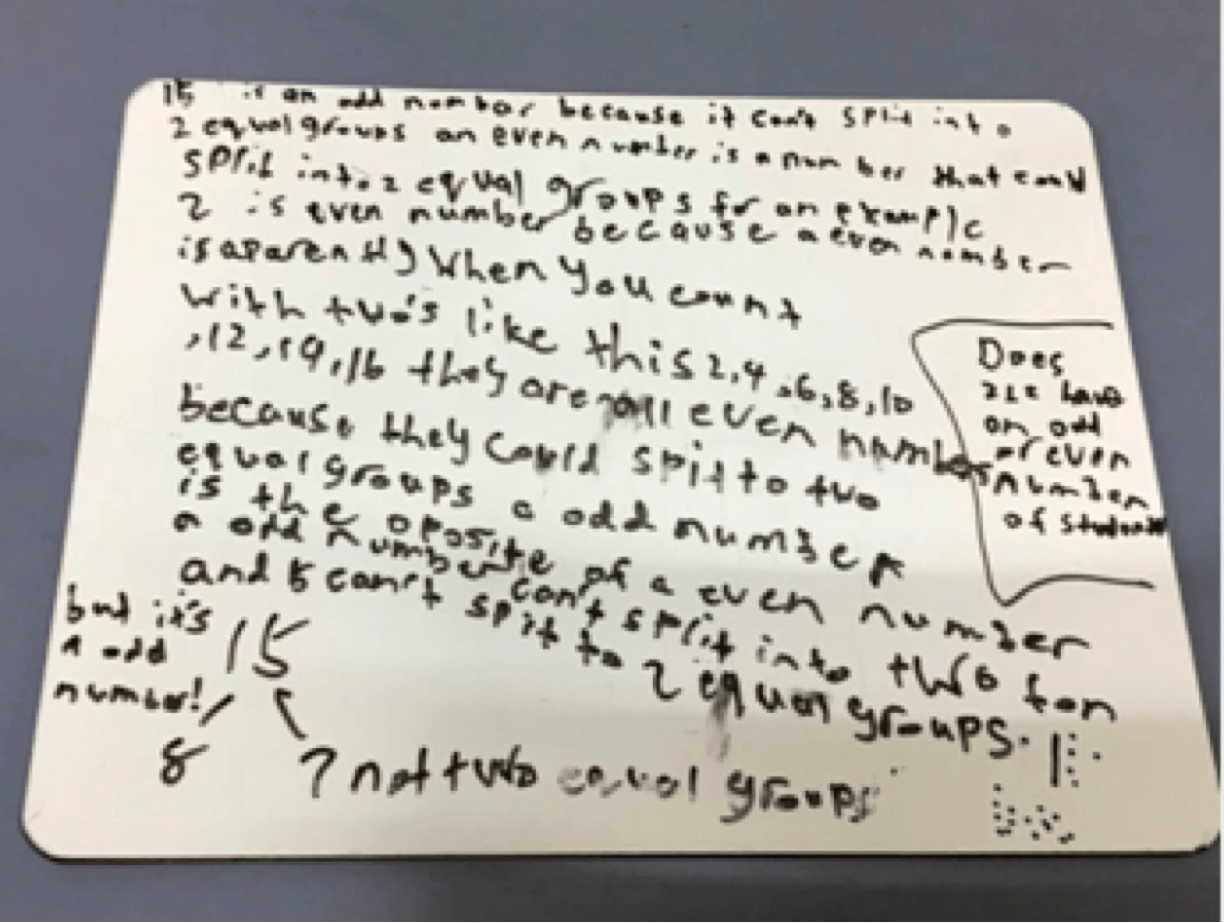 15 is an odd number because it can't split into
2 equal groups an even number is a number that could
split into 2 equal groups for an example
2 is even number because a even number
is aparently when you count
with two's like this 2,4,6,8,10
,12,14,16 they are all even number
because they could spit to two
equal groups a odd number
is the oposite of a even number
a odd number can't split into two
and can't spit to 2 equal groups.
Does
have
an odd
or even
number
of students
but it's
a odd
number!
15
8
7 not two equal groups